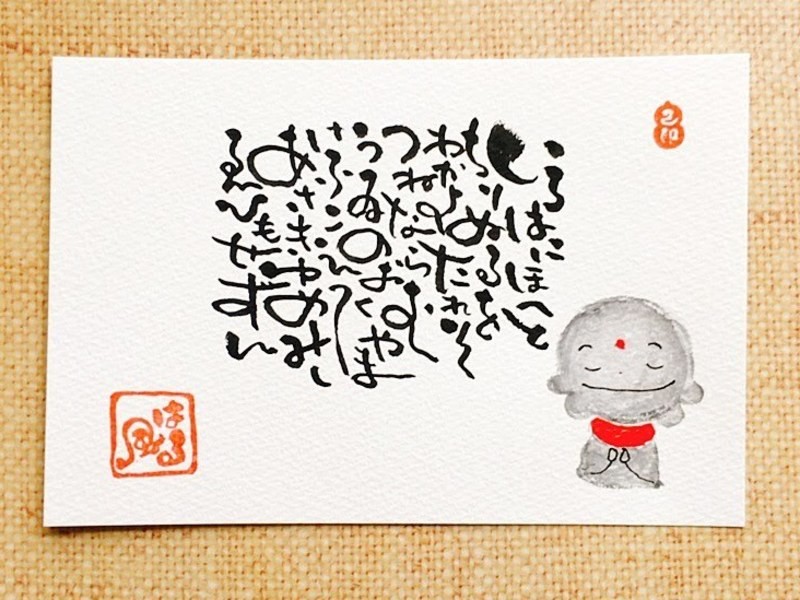 いろはにほへと
ちりぬるを
わがよたれぞ
つねならむ
うゐのおくやま
けふこえて
あさきゆめみし
ゑひもせずん